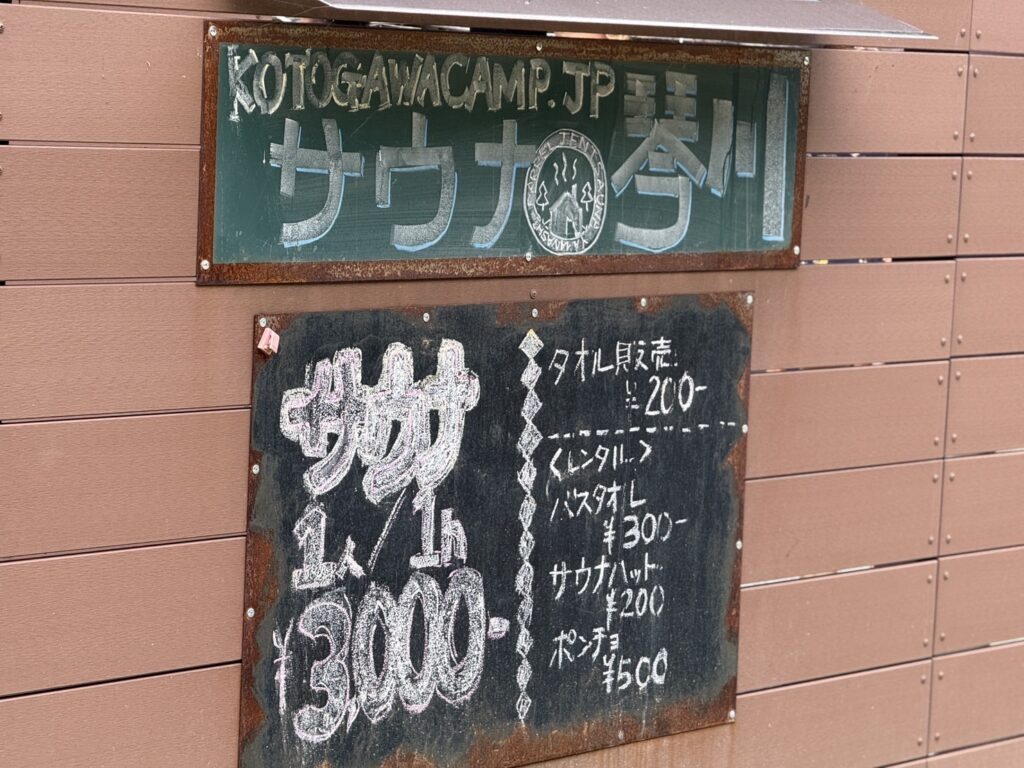 KOTOGAWACAMP.JP
サウナ 琴川
TENT SAUNA YAMANASHI
サウナ
1人/1h
¥3,000-
タオル販売:
¥200-
<レンタル>
バスタオル
¥300-
サウナハット
¥200
ポンチョ
¥500